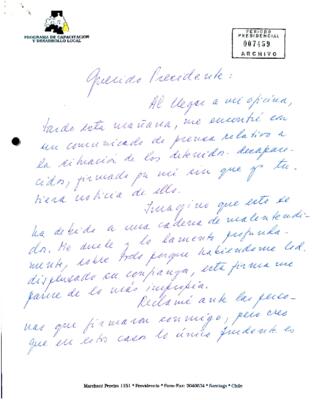 PROGRAMA DE CAPACITACION
Y DESARROLLO LOCAL
PERIODO
PRESIDENCIAL
007459
ARCHIVO
Querido Presidente:
Al llegar a mi oficina,
tarde esta mañana, me encontré con
un comunicado de prensa relativo a
la situación de los detenidos desapare-
cidos, firmado por mi sin que yo tu-
viera noticia de ello.
Imagino que esto se
ha debido a una cadena de malentendi-
dos. Me duele y lo lamento profunda-
mente, sobre todo porque habiéndome Ud.
dispensado su confianza, esta firma me
parece de lo más impropia.
Reclamé ante las perso-
nas que firmaron conmigo, pero creo
que en estos casos lo único prudente es
Marchant Pereira * Providencia * Fono-Fax: * Santiago * Chile